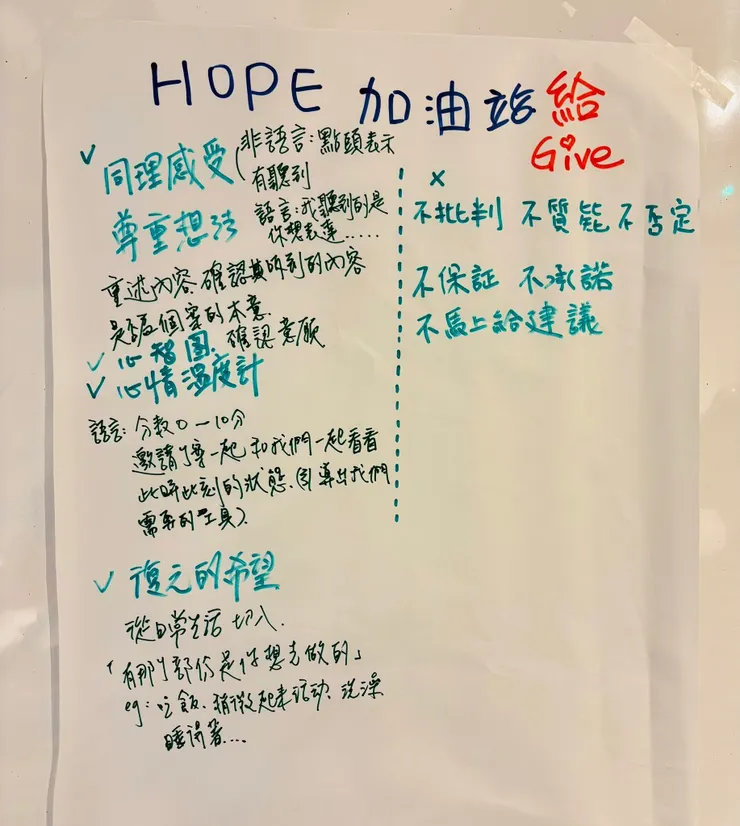 HOPE 加油站 給
Give
✓ 同理感受
(非語言：點頭表示
有聽到
尊重想法
語言：我聽到的是
你想表達.....
重述內容、確認其聽到的內容
是否是個案的本意.
✓ 心智圖、確認意願
✓ 心情溫度計
語言：分數0—10分
邀請個案一起和我們一起看看
此時此刻的狀態.(引導出我們
需要的工具).
✓ 復元的希望
從日常生活切入.
「有那個部份是你想去做的」
eg：吃飯、稍微起來活动、洗澡
睡得著...
x
不批判 不質疑 不否定
不保証 不承諾
不馬上給建議